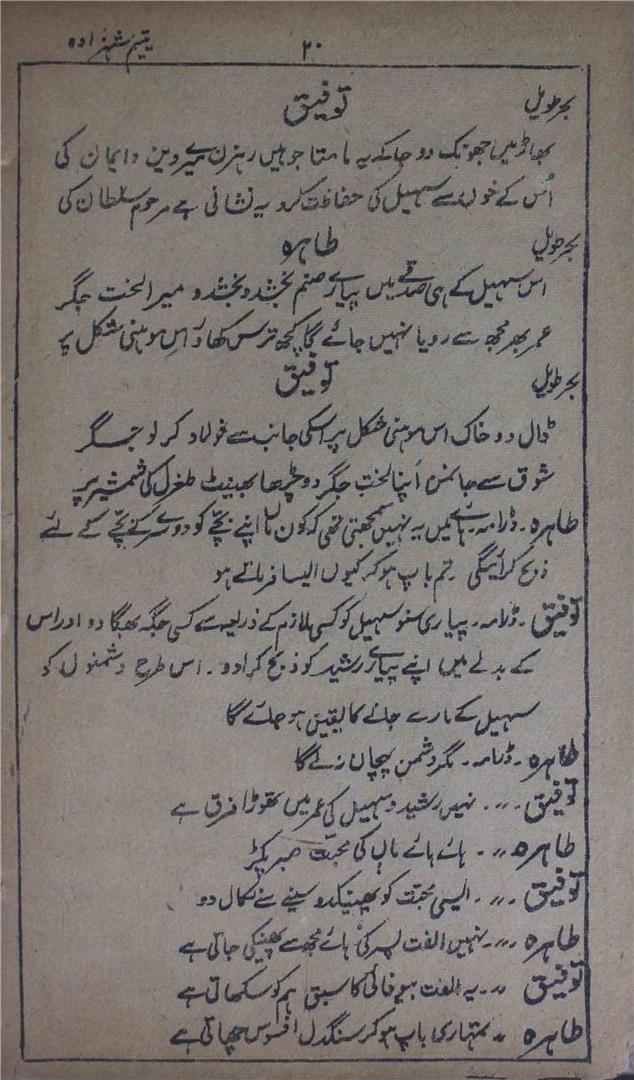 ۲۰ یتیم شہزادہ
بحر طویل توفیق
بھاڑ میں جھونک دو جا کے یہ مامتا جو ہیں رہزن میرے دین و ایمان کی
اُس کے خوں سے سہیل کی حفاظت کرو یہ نشانی ہے مرحوم سلطان کی
بحر طویل طاہرہ
اس سہیل کے ہی صدقے میں پیارے صنم بخشدو بخشدو میرا لخت جگر
عمر بھر مجھ سے رویا نہیں جائے گا کچھ ترس کھاؤ اس موہنی شکل پر
بحر طویل توفیق
ڈال دو خاک اس موہنی شکل پر اسکی جانب سے فولاد کر لو جگر
شوق سے جانمن اپنا لخت جگر دو چڑھا بھینٹ طغرل کی شمشیر پر
طاہرہ ۔ ڈرامہ ۔ ہائے میں یہ نہیں سمجھتی تھی کہ کون ماں اپنے بچے کو دوسرے کے بچے کے لئے
ذبح کرائیگی تم باپ ہو کر کیوں ایسا فرماتے ہو
توفیق ۔ ڈرامہ ۔ پیاری سنو سہیل کو کسی ملازم کے ذریعہ سے کسی جگہ بھگا دو اور اس
کے بدلے میں اپنے پیارے رشید کو ذبح کرا دو ۔ اس طرح دشمنوں کو
سہیل کے مارے جانے کا یقین ہو جائے گا
طاہرہ ۔ ڈرامہ ۔ مگر دشمن پہچان نہ لے گا
توفیق ۔ ״ ۔ نہیں رشید و سہیل کی عمر میں تھوڑا فرق ہے
طاہرہ ״ ۔ ہائے ہائے ماں کی محبت صبر پکڑ
توفیق ۔ ״ ۔ ایسی محبت کو پھینکدو سینے سے نکال دو
طاہرہ ۔ ״ ۔ نہیں الفت پسر کی ہائے مجھ سے پھینکی جاتی ہے
توفیق ״ ۔ یہ الفت بیوفائی کا سبق ہم کو سکھاتی ہے
طاہرہ ״ تمہاری باپ ہو کر سنگدل افسوس چھاتی ہے